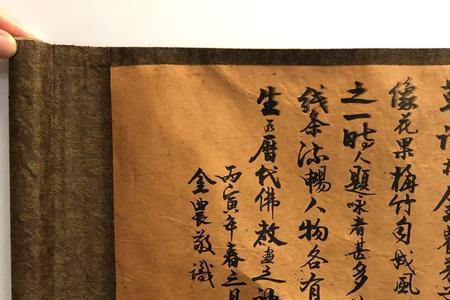 像花果梅竹自成風
之一時人題咏者甚多
线条流暢人物各有
生及曆代佛教畫之
丙寅年春三月
金農敬識